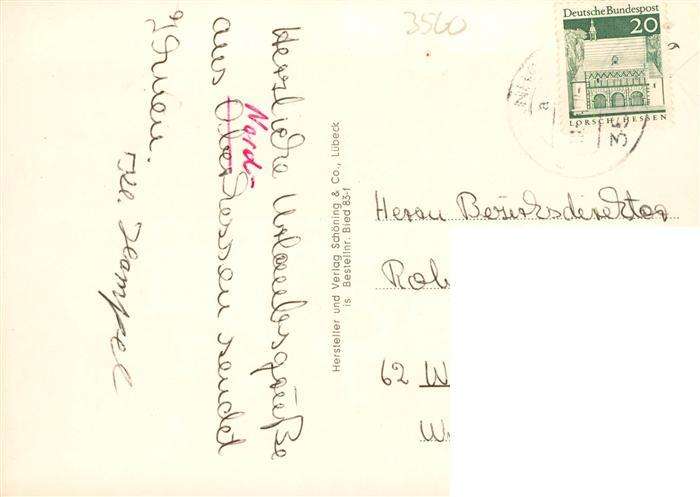 3560
Deutsche Bundespost
20
LORSCH/HESSEN
Herzliche Urlaubsgrüße
Nord-
aus Oberhessen sendet
Ihnen
Hersteller und Verlag Schöning & Co., Lübeck
is Bestellnr. Bied 83-f
Herrn Bezirksdirektor
Rob
62 W